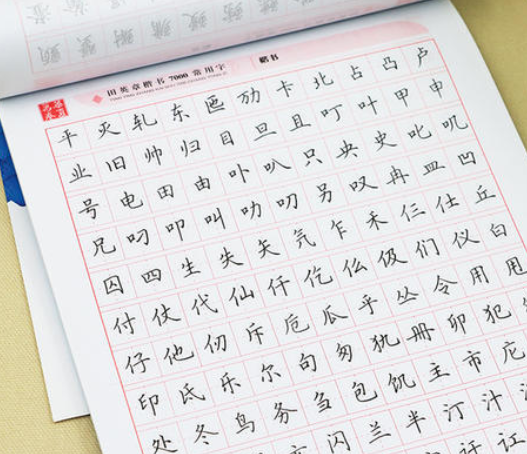 田英章楷书 7000 常用字
楷书
平灭轧东匜劢卡北占凸卢
业旧帅归目旦且叮叶甲申
号电田由卟叭只央史叱叽
兄叼叩叫叻叨另叹冉皿凹
囚四生失矢气乍禾仨仕丘
付仗代仙仟仡仫伋们仪白
仔他仞斥卮瓜乎丛令用甩
印氐乐尔句匆犰册卯犯
处冬鸟务刍包饥主市庀
闪兰半汀汁